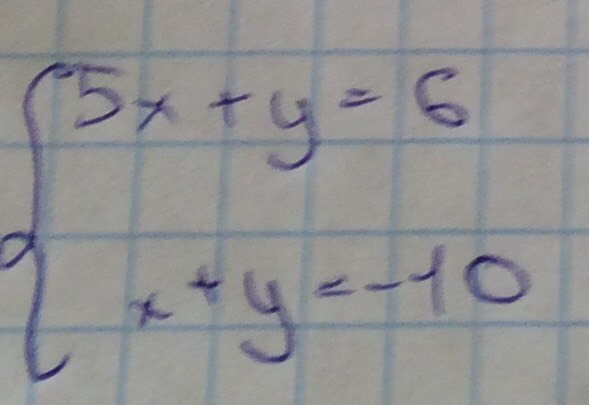 5x + y = 6
x + y = -10